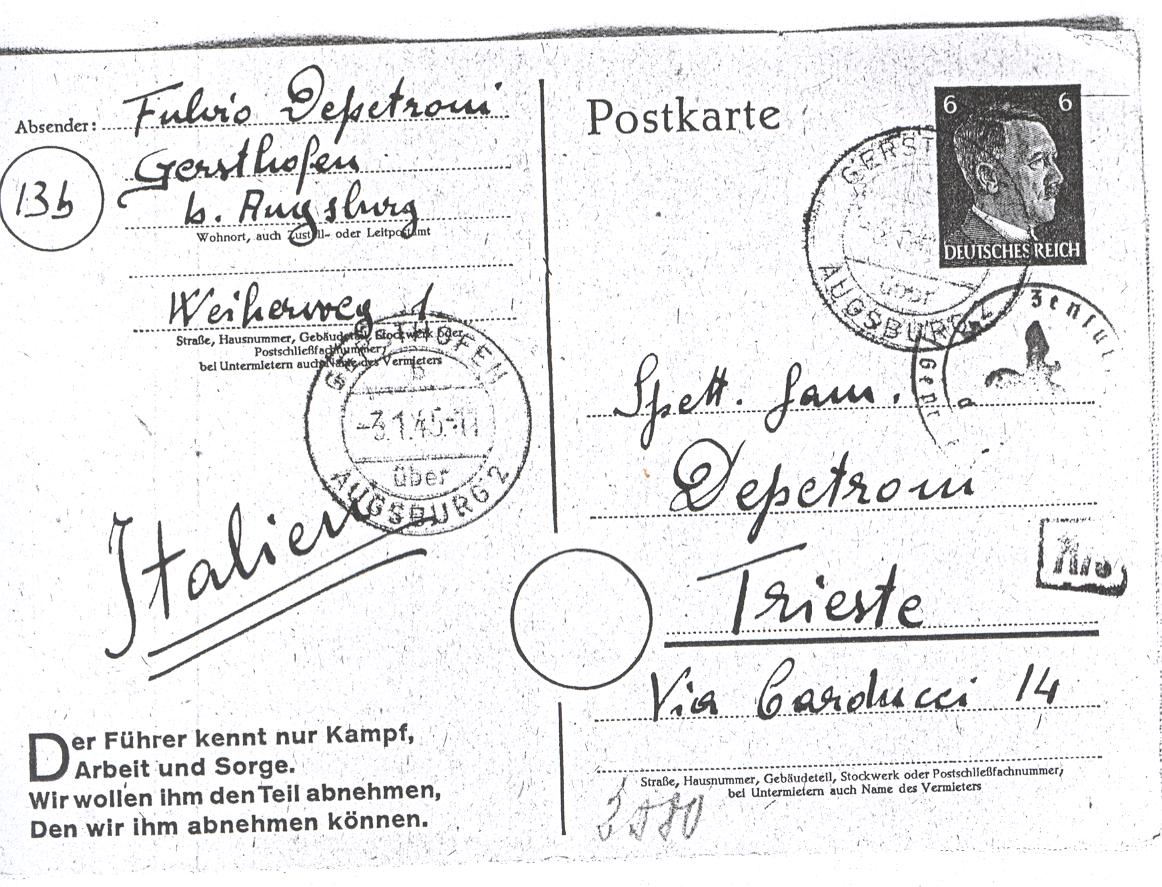 Absender: Fulvio Depetroni
13b
Gersthofen
b. Augsburg
Wohnort, auch Zustell- oder Leitpostamt
Weiherweg 1
Straße, Hausnummer, Gebäudeteil, Stockwerk oder
Postschließfachnummer;
bei Untermietern auch Name des Vermieters
GERSTHOFEN
b
-3.1.45.-11
über
AUGSBURG 2
Italien
Der Führer kennt nur Kampf,
Arbeit und Sorge.
Wir wollen ihm den Teil abnehmen,
Den wir ihm abnehmen können.
Postkarte
6 6
DEUTSCHES REICH
GERST
über
AUGSBURG 2
Zentral
Gepr
Spett. fam.
Depetroni
Trieste
Via Carducci 14
Straße, Hausnummer, Gebäudeteil, Stockwerk oder Postschließfachnummer;
bei Untermietern auch Name des Vermieters